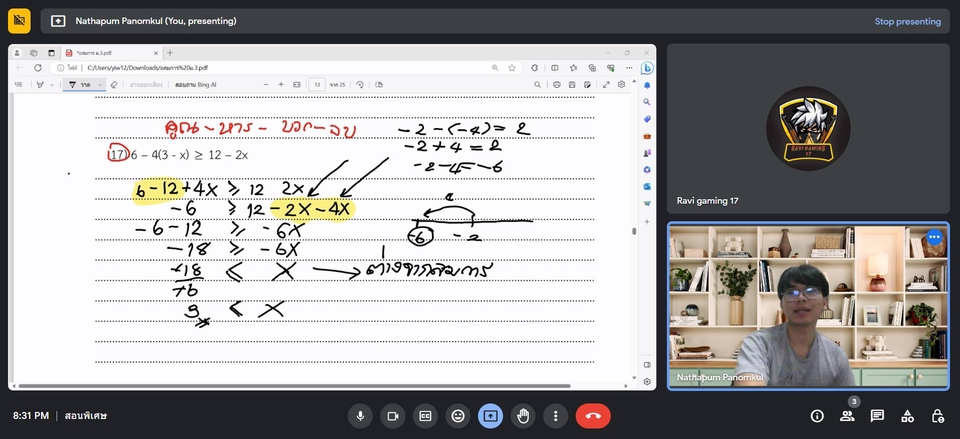 Nathapum Panomkul (You, presenting)
Stop presenting
*อสมการ ม.3.pdf
ไฟล์
C:/Users/yiw12/Downloads/อสมการ%20ม.3.pdf
วาด
อ่านออกเสียง
สอบถาม Bing AI
13
จาก 25
คูณ - หาร - บวก - ลบ
17) 6 - 4(3 - x) ≥ 12 - 2x
6 - 12 + 4x ≥ 12 2x
-6 ≥ 12 - 2x - 4x
-6 - 12 ≥ -6x
-18 ≥ -6x
3 ≤ x
-2 - (-4) = 2
-2 + 4 = 2
-2 - 4 = -6
-6 -2
RAVI GAMING
17
Ravi gaming 17
Nathapum Panomkul
8:31 PM | สอนพิเศษ
3